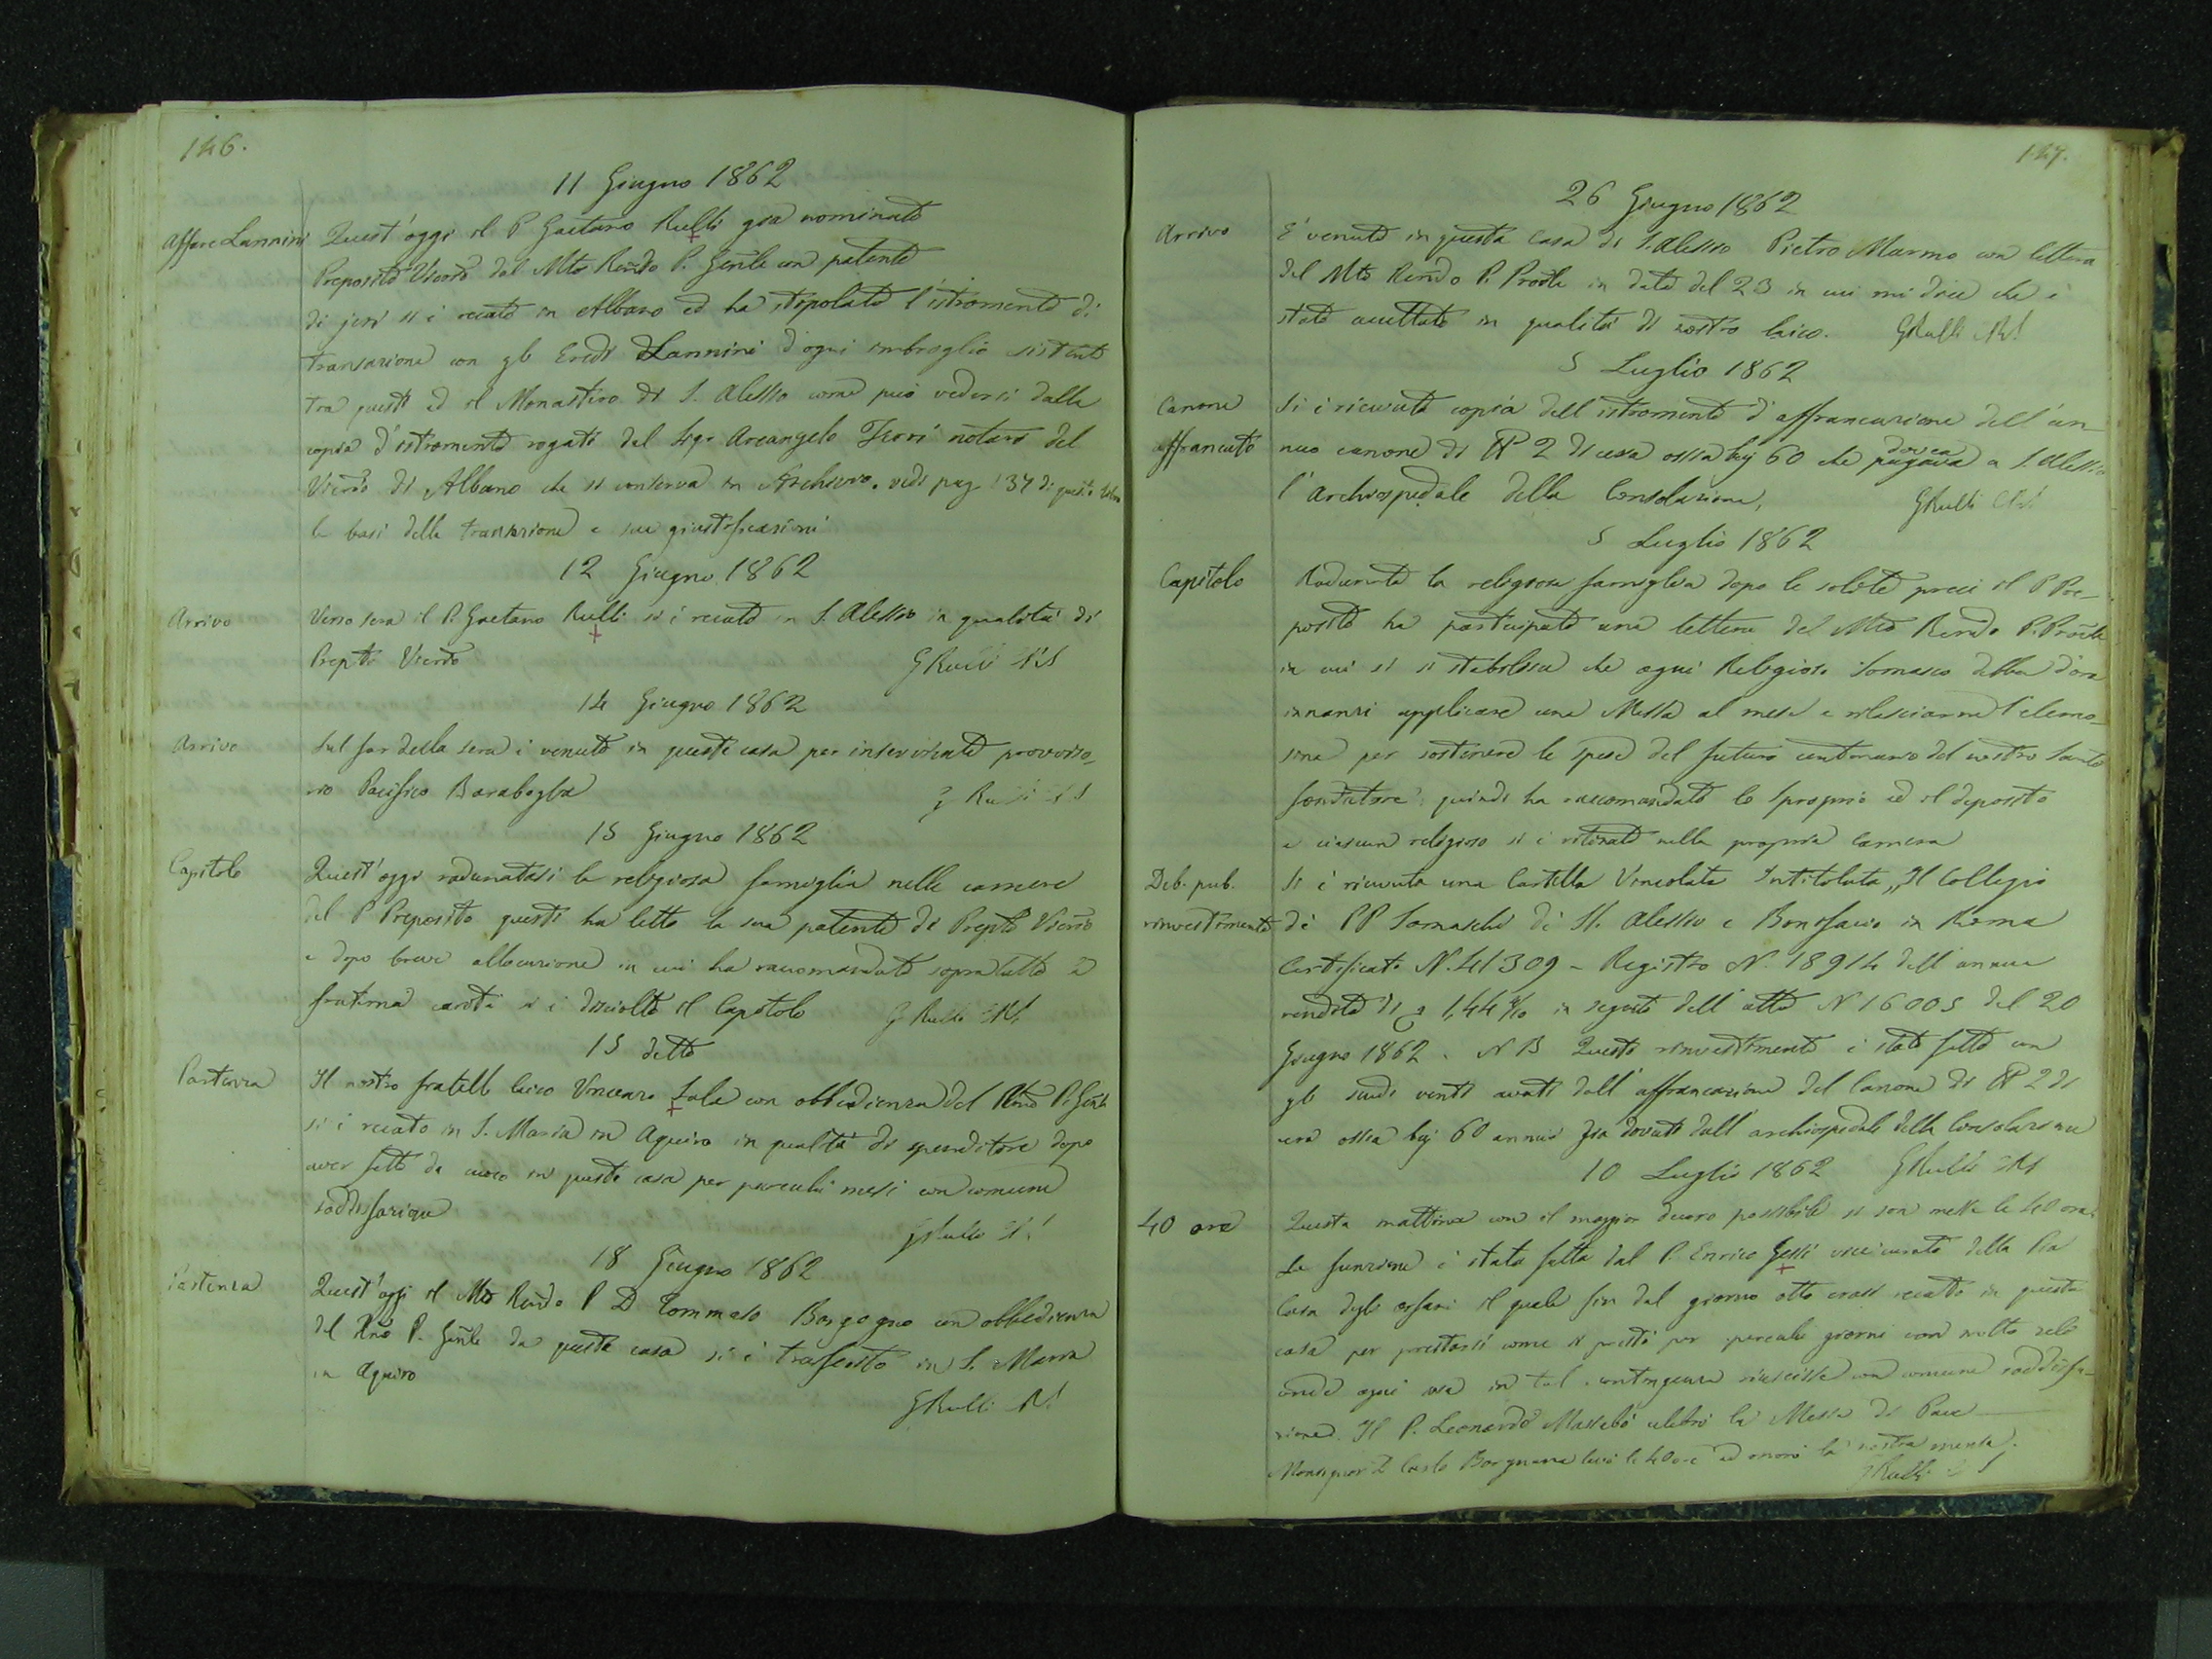 146.
11 Giugno 1862
Affare Lannini Quest'oggi il P. Gaetano Rulli già nominato
Preposito Vicario dal Mto Rendo P. Genle con patente
di jeri si è recato in Albano ed ha stipolato l'istromento di
transazione con gli Eredi Lannini d'ogni imbroglio
tra questi ed il Monastero di S. Alessio come può vedersi dalla
copia d'istromento rogato dal Sigr Arcangelo notaro del
di Albano che si conserva in Archivio. vedi pag 137 di questo libro
le basi della transazione e sue giustificazioni
12 Giugno 1862
Arrivo Verso sera il P. Gaetano Rulli si è recato in S. Alessio in qualità di
Prepto Vicario GRulli
14 Giugno 1862
Arrivo Sul far della sera è venuto in questa casa per inserviente provviso-
rio Pacifico Barabaglia G Rulli
15 Giugno 1862
Capitolo Quest'oggi radunatasi la religiosa famiglia nelle camere
del P Preposito questi ha letto la sua patente di Prepto Vicario
e dopo breve allocuzione in cui ha raccomandato sopratutto la
fraterna carità si è disciolto il Capitolo G Rulli
15 detto
Partenza Il nostro fratello laico Vincenzo Sala con obbedienza del Rmo P. Genle
si è recato in S. Maria in Aquiro in qualità di spenditore dopo
aver fatto da cuoco in questa casa per parecchi mesi con comune
soddisfazione GRulli
18 Giugno 1862
Partenza Quest'oggi il Mto Rendo P D Tommaso Borgogno con obbedienza
del Rmo P. Genle da questa casa si è trasferito in S. Maria
in Aquiro
GRulli
147.
26 Giugno 1862
Arrivo E' venuto in questa Casa di S. Alessio Pietro Marmo con lettera
del Mto Rendo P. Prorle in data del 23 in cui mi dice che è
stato accettato in qualità di nostro laico. GRulli
5 Luglio 1862
Canone Si è ricevuta copia dell'istromento d'affrancazione dell'an-
affrancato nuo canone di 2 di cera ossia bj 60 che doveva pagava a S. Alessio
l'Archiospedale della Consolazione. GRulli
5 Luglio 1862
Capitolo Radunata la religiosa famiglia dopo le solite preci il P Pre-
posito ha partecipato una lettera del Mto Rendo P. Prorle
in cui si stabilisce che ogni Religioso Somasco debba d'ora
innanzi applicare una Messa al mese e rilasciarne l'elemo-
sina per sostenere le spese del futuro centenario del nostro Santo
fondatore: quindi ha raccomandato lo sproprio ed il deposito
e ciascun religioso si è ritirato nella propria camera
Deb. pub. Si è ricevuta una Cartella Vincolata Intitolata „Il Collegio
rinvestimento di PP Somaschi di SS. Alessio e Bonifacio in Roma
Certificato N. 41309 - Registro N. 18914 dell'annua
rendita di 1,44 in seguito dell'atto N 16005 del 20
Giugno 1862. NB Questo rinvestimento è stato fatto con
gli scudi venti avuti dall'affrancazione del Canone di 2 di
cera ossia bj 60 annui già dovuti dall'archiospedale della Consolazione
10 Luglio 1862 GRulli
40 ore Questa mattina con il maggior decoro possibile si son messe le 40 ore.
La funzione è stata fatta dal P. Enrico Gessi vicecurato della Pia
Casa degli orfani il quale fin dal giorno otto erasi recato in questa
casa per prestarsi come si prestò per parecchi giorni con molto zelo
onde ogni cosa in tal contingenza riuscisse con comune soddisfa-
zione. Il P. Leonardo Massabò celebrò la Messa di Pace
Monsignor D Carlo Borgnana levò le 40 ore ed onorò la nostra mensa.
GRulli